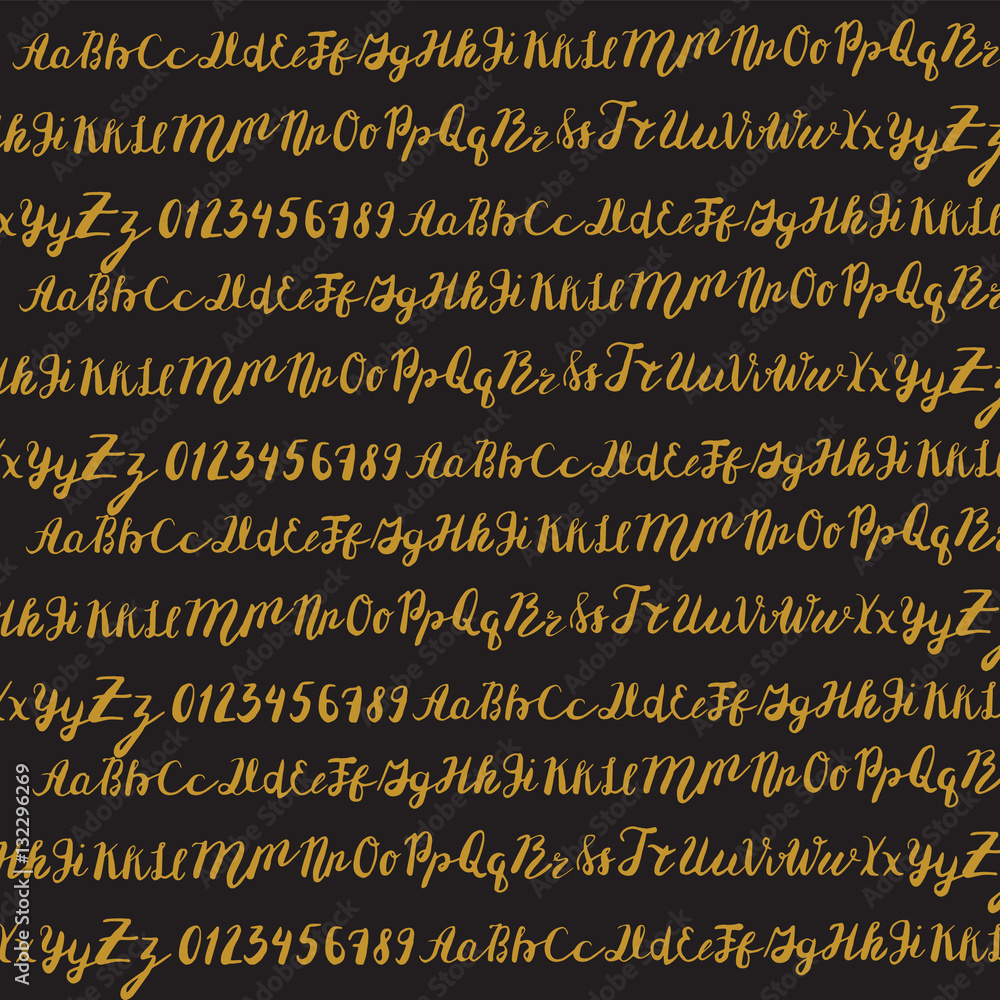 AaBbCcDdEeFfGgHhIiKkLlMmNnOoPpQqRr
HhIiKkLlMmNnOoPpQqRrSsTtUuVvWwXxYyZz
XxYyZz 0123456789 AaBbCcDdEeFfGgHhIiKkLl
AaBbCcDdEeFfGgHhIiKkLlMmNnOoPpQqRr
HhIiKkLlMmNnOoPpQqRrSsTtUuVvWwXxYyZz
XxYyZz 0123456789 AaBbCcDdEeFfGgHhIiKkLl
AaBbCcDdEeFfGgHhIiKkLlMmNnOoPpQqRr
HhIiKkLlMmNnOoPpQqRrSsTtUuVvWwXxYyZz
XxYyZz 0123456789 AaBbCcDdEeFfGgHhIiKkLl
AaBbCcDdEeFfGgHhIiKkLlMmNnOoPpQqRr
HhIiKkLlMmNnOoPpQqRrSsTtUuVvWwXxYyZz
XxYyZz 0123456789 AaBbCcDdEeFfGgHhIiKkLl
Adobe Stock | #132296269